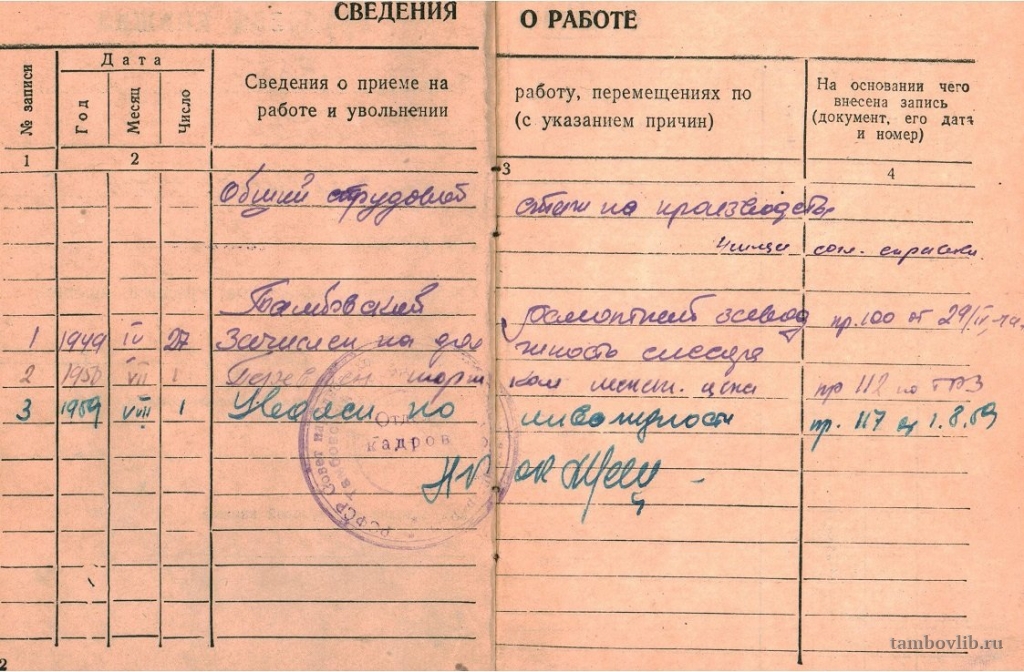 СВЕДЕНИЯ О РАБОТЕ
№ записи
Дата
Год
Месяц
Число
Сведения о приеме на работу, перемещениях по
работе и увольнении (с указанием причин)
На основании чего
внесена запись
(документ, его дата
и номер)
1 2 3 4
Общий трудовой стаж на производстве
согл. справки
Тамбовский ремонтный завод
1 1949 IV 27 Зачислен на должность слесаря пр. 100 от 29/IV-49.
2 1950 VII 1 Переведен инст. цеха пр 112 по ТРЗ
3 1959 VIII 1 Уволен по инвалидности пр. 117 от 1.8.59
Отдел
кадров
РСФСР Совет на
2
tambovlib.ru